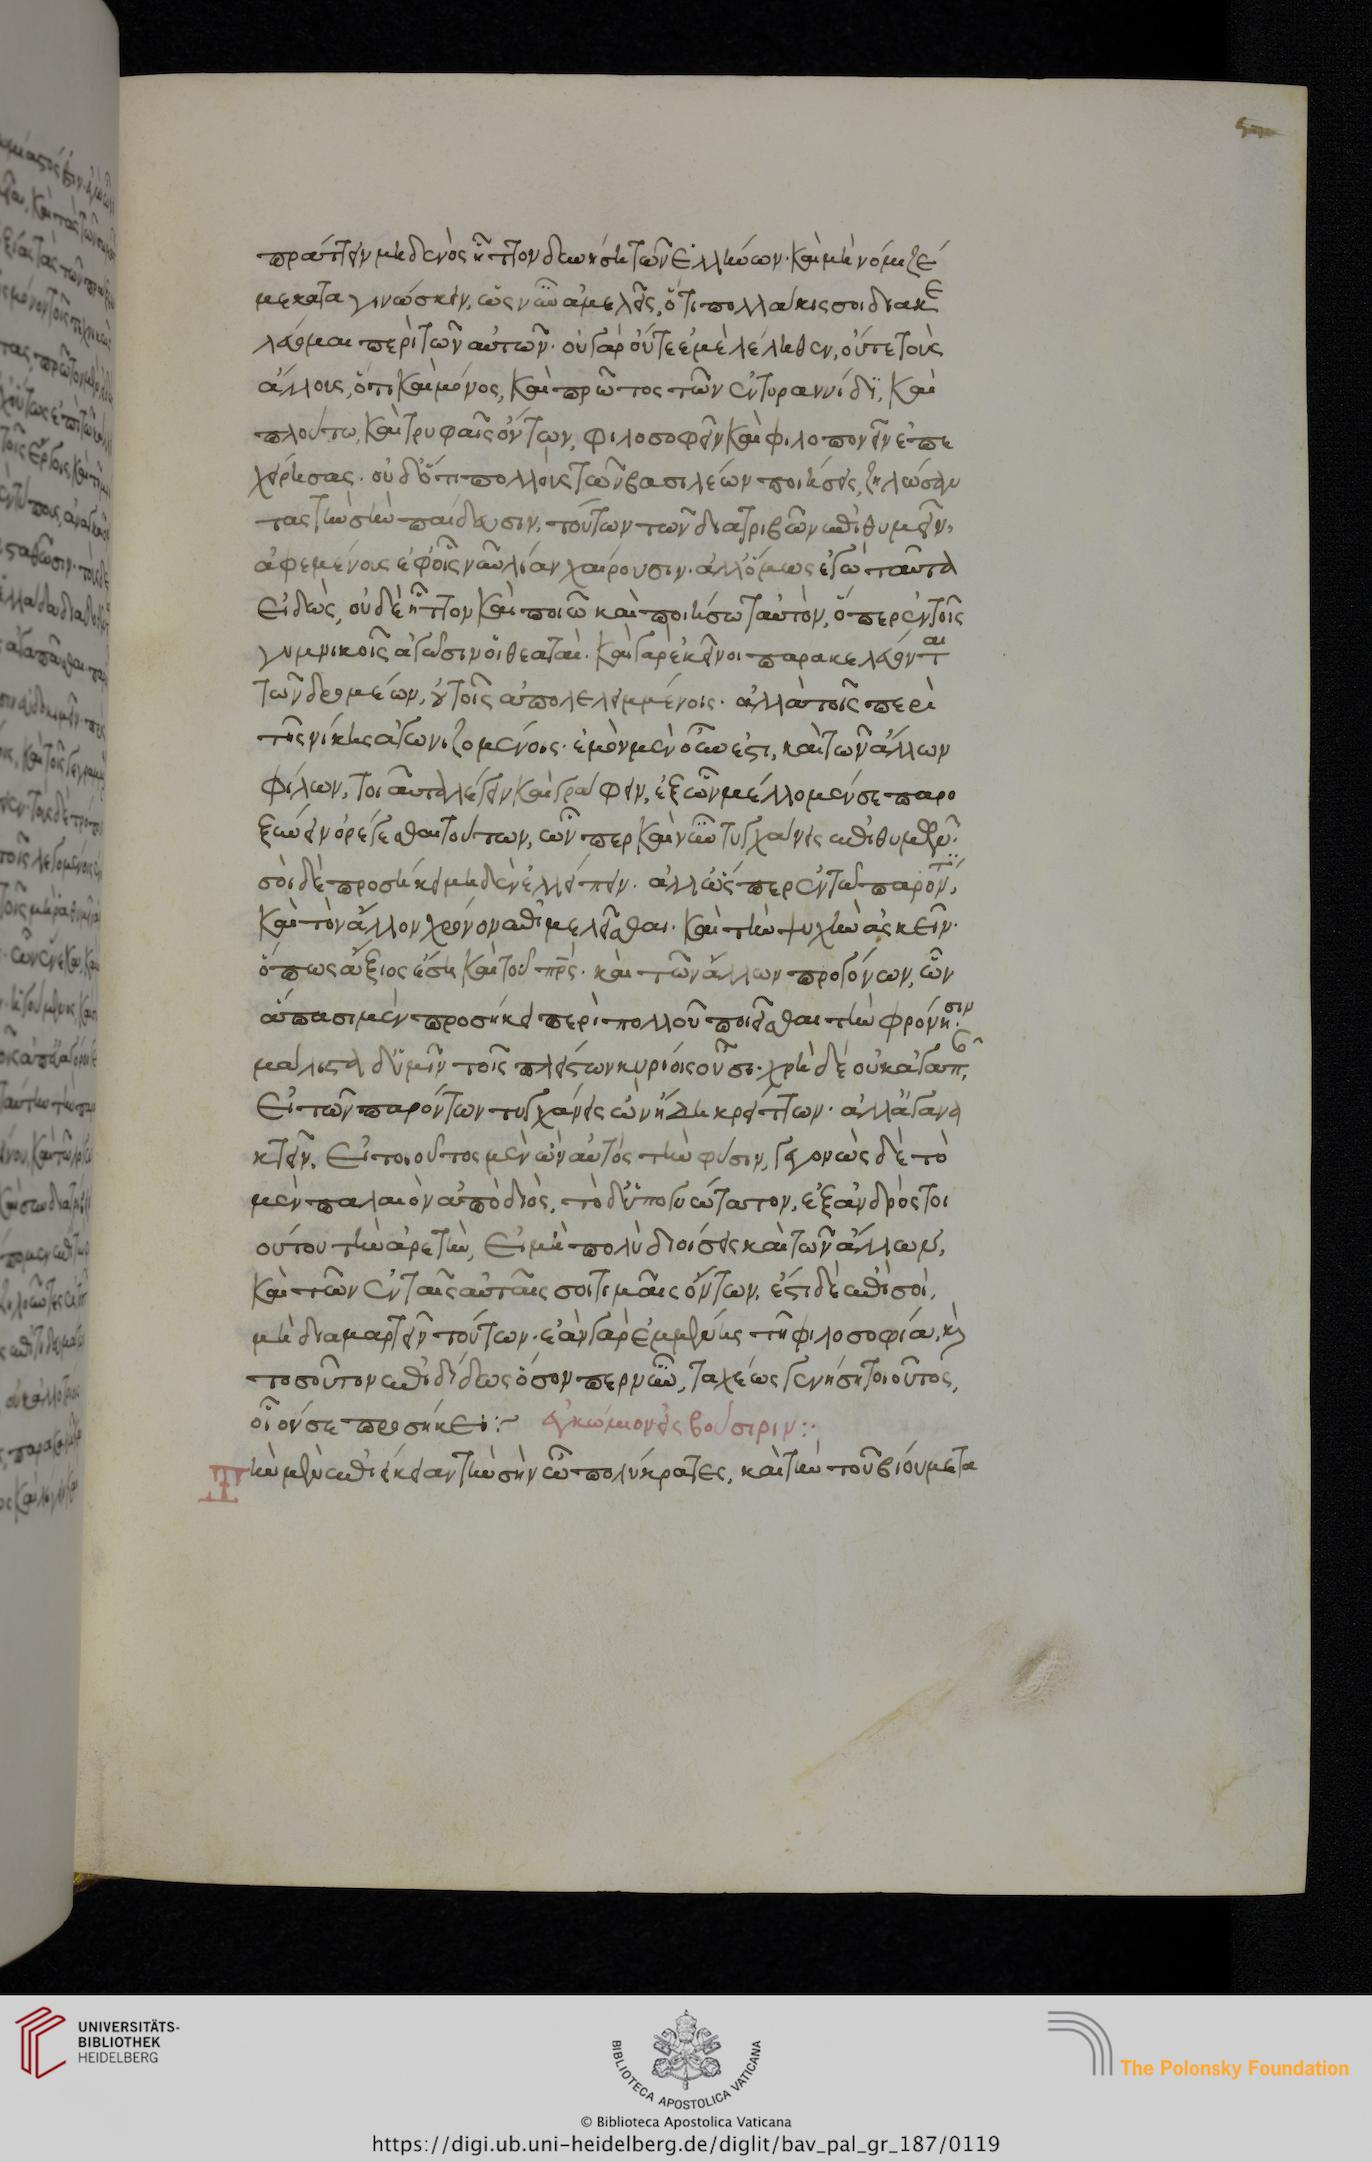 πράττειν μηδενὸς ἧττον δυνήση τῶν ἑλλήνων. καὶ μὴ νόμιζέ
με καταγινώσκειν, ὡς νῦν ἀμελεῖς, ὅτι πολλάκις σοι διακε
λεύομαι περὶ τῶν αὐτῶν. οὐ γὰρ οὔτε ἐμὲ λέληθεν, οὔτε τοὺς
ἄλλους, ὅτι καὶ μόνος, καὶ πρῶτος τῶν ἐν τυραννίδι, καὶ
πλούτω, καὶ τρυφαῖς ὄντων, φιλοσοφεῖν καὶ φιλοπονεῖν ἐπε
χείρησας. οὐδ' ὅτι πολλοὺς τῶν βασιλέων ποιήσεις, ζηλώσαν
τας τὴν σὴν παίδευσιν, τούτων τῶν διατριβῶν ἐπιθυμεῖν,
ἀφεμένους ἐφ' οἷς νῦν λίαν χαίρουσιν. ἀλλ' ὅμως ἐγὼ ταῦτα
εἰδὼς, οὐδὲν ἧττον καὶ ποιῶ καὶ ποιήσω ταὐτὸν, ὅπερ ἐν τοῖς
γυμνικοῖς ἀγῶσιν οἱ θεαταί. καὶ γὰρ ἐκεῖνοι παρακελεύονται
τῶν δρομέων, οὐ τοῖς ἀπολελειμμένοις. ἀλλὰ τοῖς περὶ
τῆς νίκης ἀγωνιζομένοις. ἐμὸν μὲν οὖν ἐστι, καὶ τῶν ἄλλων
φίλων, τοιαῦτα λέγειν καὶ γράφειν, ἐξ ὧν μέλλομέν σε παρο
ξύνειν ὀρέγεσθαι τούτων, ὧν περ καὶ νῦν τυγχάνεις ἐπιθυμῶν.
σοὶ δὲ προσήκει μηδὲν ἐλλείπειν. ἀλλ' ὥσπερ ἐν τῶ παρόντι,
καὶ τὸν ἄλλον χρόνον ἐπιμελεῖσθαι. καὶ τὴν ψυχὴν ἀσκεῖν.
ὅπως ἄξιος ἔση καὶ τοῦ πρς. καὶ τῶν ἄλλων προγόνων, ὧν
ἅπασι μὲν προσήκει περὶ πολλοῦ ποιεῖσθαι τὴν φρόνησιν.
μάλιστα δ' ὑμῖν τοῖς πλείστων κυρίοις οὖσι. χρὴ δὲ οὐκ ἀγαπᾶν,
εἰ τῶν παρόντων τυγχάνεις ὢν ἤδη κρείττων. ἀλλ' ἀγανα
κτεῖν, εἰ τοιοῦτος μὲν ὢν αὐτὸς τὴν φύσιν, γεγονὼς δὲ τὸ
μὲν παλαιὸν ἀπὸ διὸς, τὸ δ' ὑπογυώτατον, ἐξ ἀνδρὸς τοι
ούτου τὴν ἀρετὴν, εἰ μὴ πολὺ διοίσεις καὶ τῶν ἄλλων,
καὶ τῶν ἐν ταῖς αὐταῖς σοι τιμαῖς ὄντων. ἔστι δὲ ἐπὶ σοὶ,
μὴ διαμαρτεῖν τούτων. ἐὰν γὰρ ἐμμένης τῆ φιλοσοφία, καὶ
τοσοῦτον ἐπιδίδως ὅσον περ νῦν, ταχέως γενήση τοιοῦτος,
οἷον σε προσήκει:~ ἐγκώμιον εἰς βούσιριν:·
Τὴν μὲν ἐπιείκειαν τὴν σὴν ὦ πολύκρατες, καὶ τὴν τοῦ βίου μετα
UNIVERSITÄTS-
BIBLIOTHEK
HEIDELBERG
BIBLIOTECA APOSTOLICA VATICANA
The Polonsky Foundation
© Biblioteca Apostolica Vaticana
https://digi.ub.uni-heidelberg.de/diglit/bav_pal_gr_187/0119